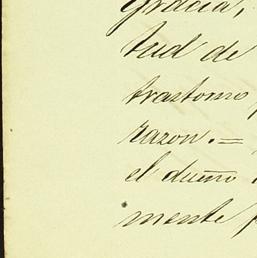 gracia,
tud de
trastorno
razon.=
el dueño
mente